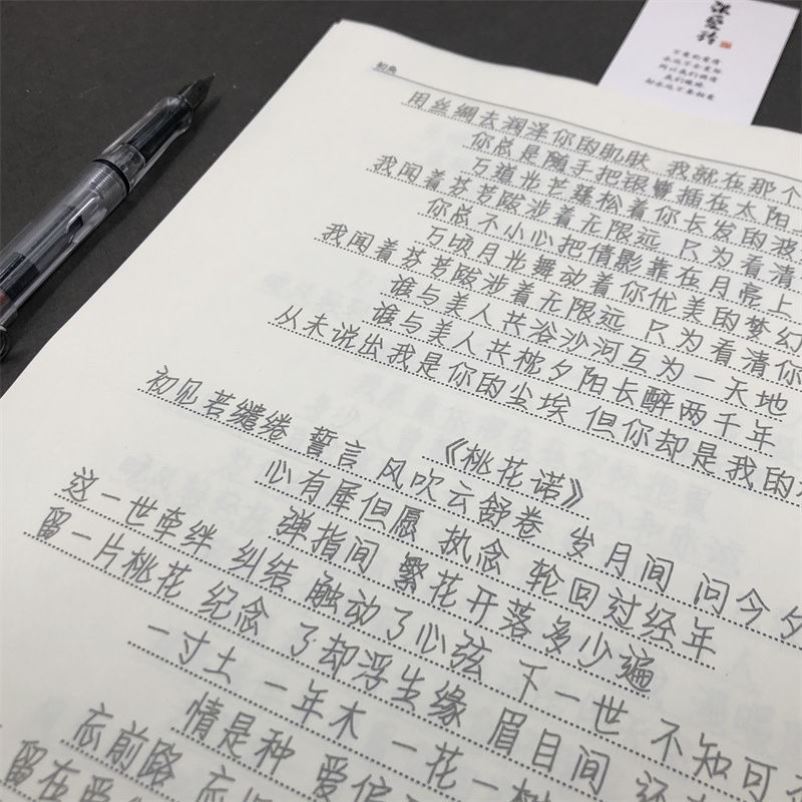 初见
用丝绸去润泽你的肌肤 我就在那个
你总是随手把银簪插在太阳
万道光芒蓬松着你长发的波
我闻着芬芳跋涉着无限远 只为看清
你总不小心把倩影靠在月亮上
万顷月光舞动着你优美的梦幻
我闻着芬芳跋涉着无限远 只为看清你
谁与美人共浴沙河互为一天地
谁与美人共枕夕阳长醉两千年
从未说出我是你的尘埃 但你却是我的
《桃花诺》
初见若缱绻 誓言 风吹云舒卷 岁月间 问今夕
心有犀但愿 执念 轮回过经年
弹指间 繁花开落多少遍
这一世牵绊 纠结 触动了心弦 下一世 不知可
留一片桃花 纪念 了却浮生缘 眉目间 还
一寸土 一年木 一花一树
情是种 爱偏
忘前路 忘
留在爱